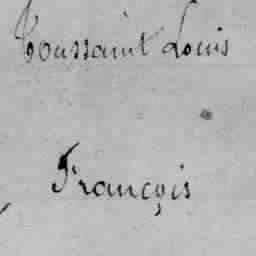 Toussaint Louis
François